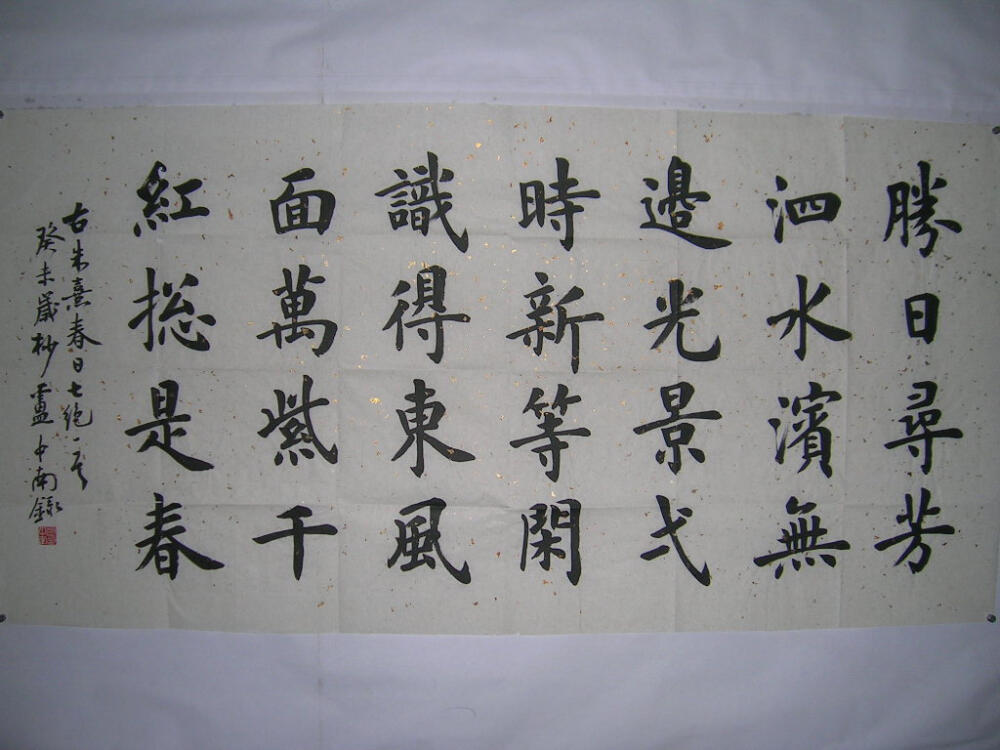 勝日尋芳
泗水濱無
邊光景弌
時新等閑
識得東風
面萬紫千
紅総是春
古朱熹春日七绝一首
癸未歲杪盧中南錄